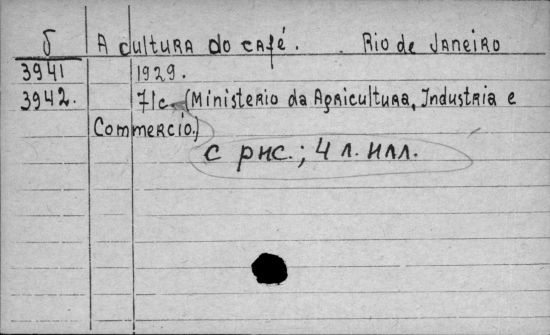 δ A cultura do café. Rio de Janeiro
3941 1929.
3942. 71c. (Ministerio da Agricultura, Industria e
Commercio.)
с рис.; 4 л. илл.